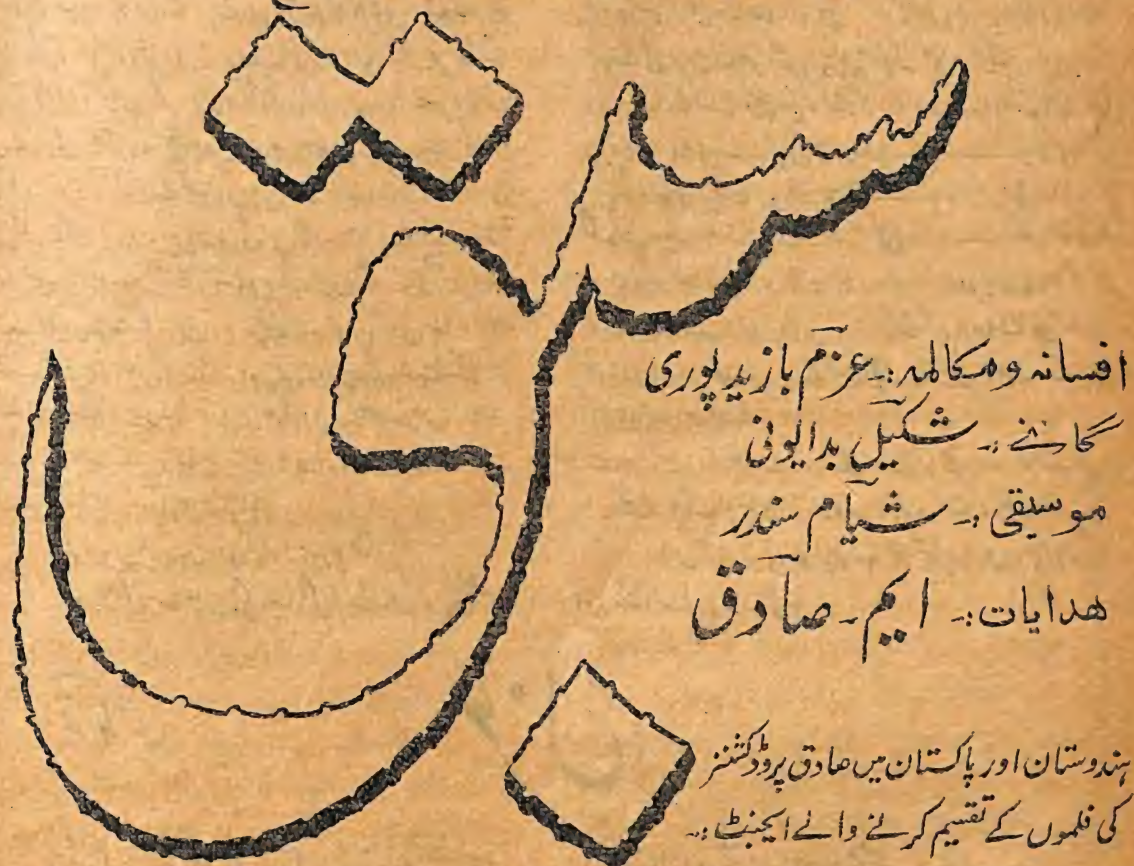 سبق
افسانہ و مکالمہ:۔ عزم بازید پوری
گانے:۔ شکیل بدایونی
موسیقی:۔ شیام سندر
ھدایات:۔ ایم۔ صادق
ہندوستان اور پاکستان میں صادق پروڈکشنز
کی فلموں کے تقسیم کرنے والے ایجنٹ:۔